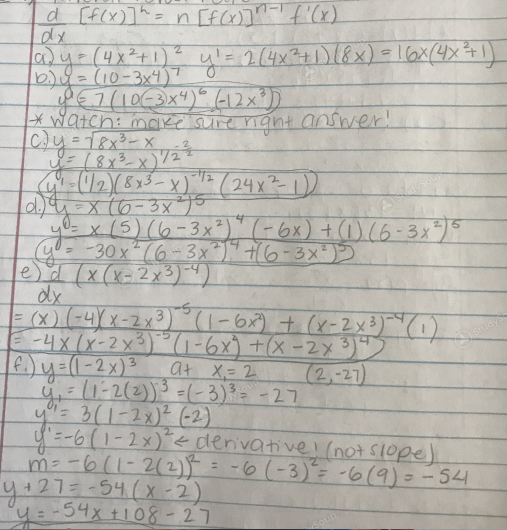 d [f(x)]^n = n [f(x)]^(n-1) f'(x)
dx
a) y = (4x²+1)² y' = 2(4x²+1)(8x) = 16x(4x²+1)
b.) y = (10-3x⁴)⁷
y' = 7(10-3x⁴)⁶(-12x³)
* Watch: make sure right answer!
c.) y = √8x³-x
y = (8x³-x)^(1/2)
y' = (1/2)(8x³-x)^(-1/2) (24x²-1)
d.) y = x(6-3x²)⁵
y' = x(5)(6-3x²)⁴(-6x) + (1)(6-3x²)⁵
y' = -30x²(6-3x²)⁴ + (6-3x²)⁵
e.) d (x(x-2x³)⁻⁴)
dx
= (x)(-4)(x-2x³)⁻⁵(1-6x²) + (x-2x³)⁻⁴(1)
= -4x(x-2x³)⁻⁵(1-6x²) + (x-2x³)⁴
f.) y = (1-2x)³ at x = 2 (2,-27)
y₁ = (1-2(2))³ = (-3)³ = -27
y' = 3(1-2x)²(-2)
y' = -6(1-2x)² ← derivative! (not slope)
m = -6(1-2(2))² = -6(-3)² = -6(9) = -54
y+27 = -54(x-2)
y = -54x+108-27